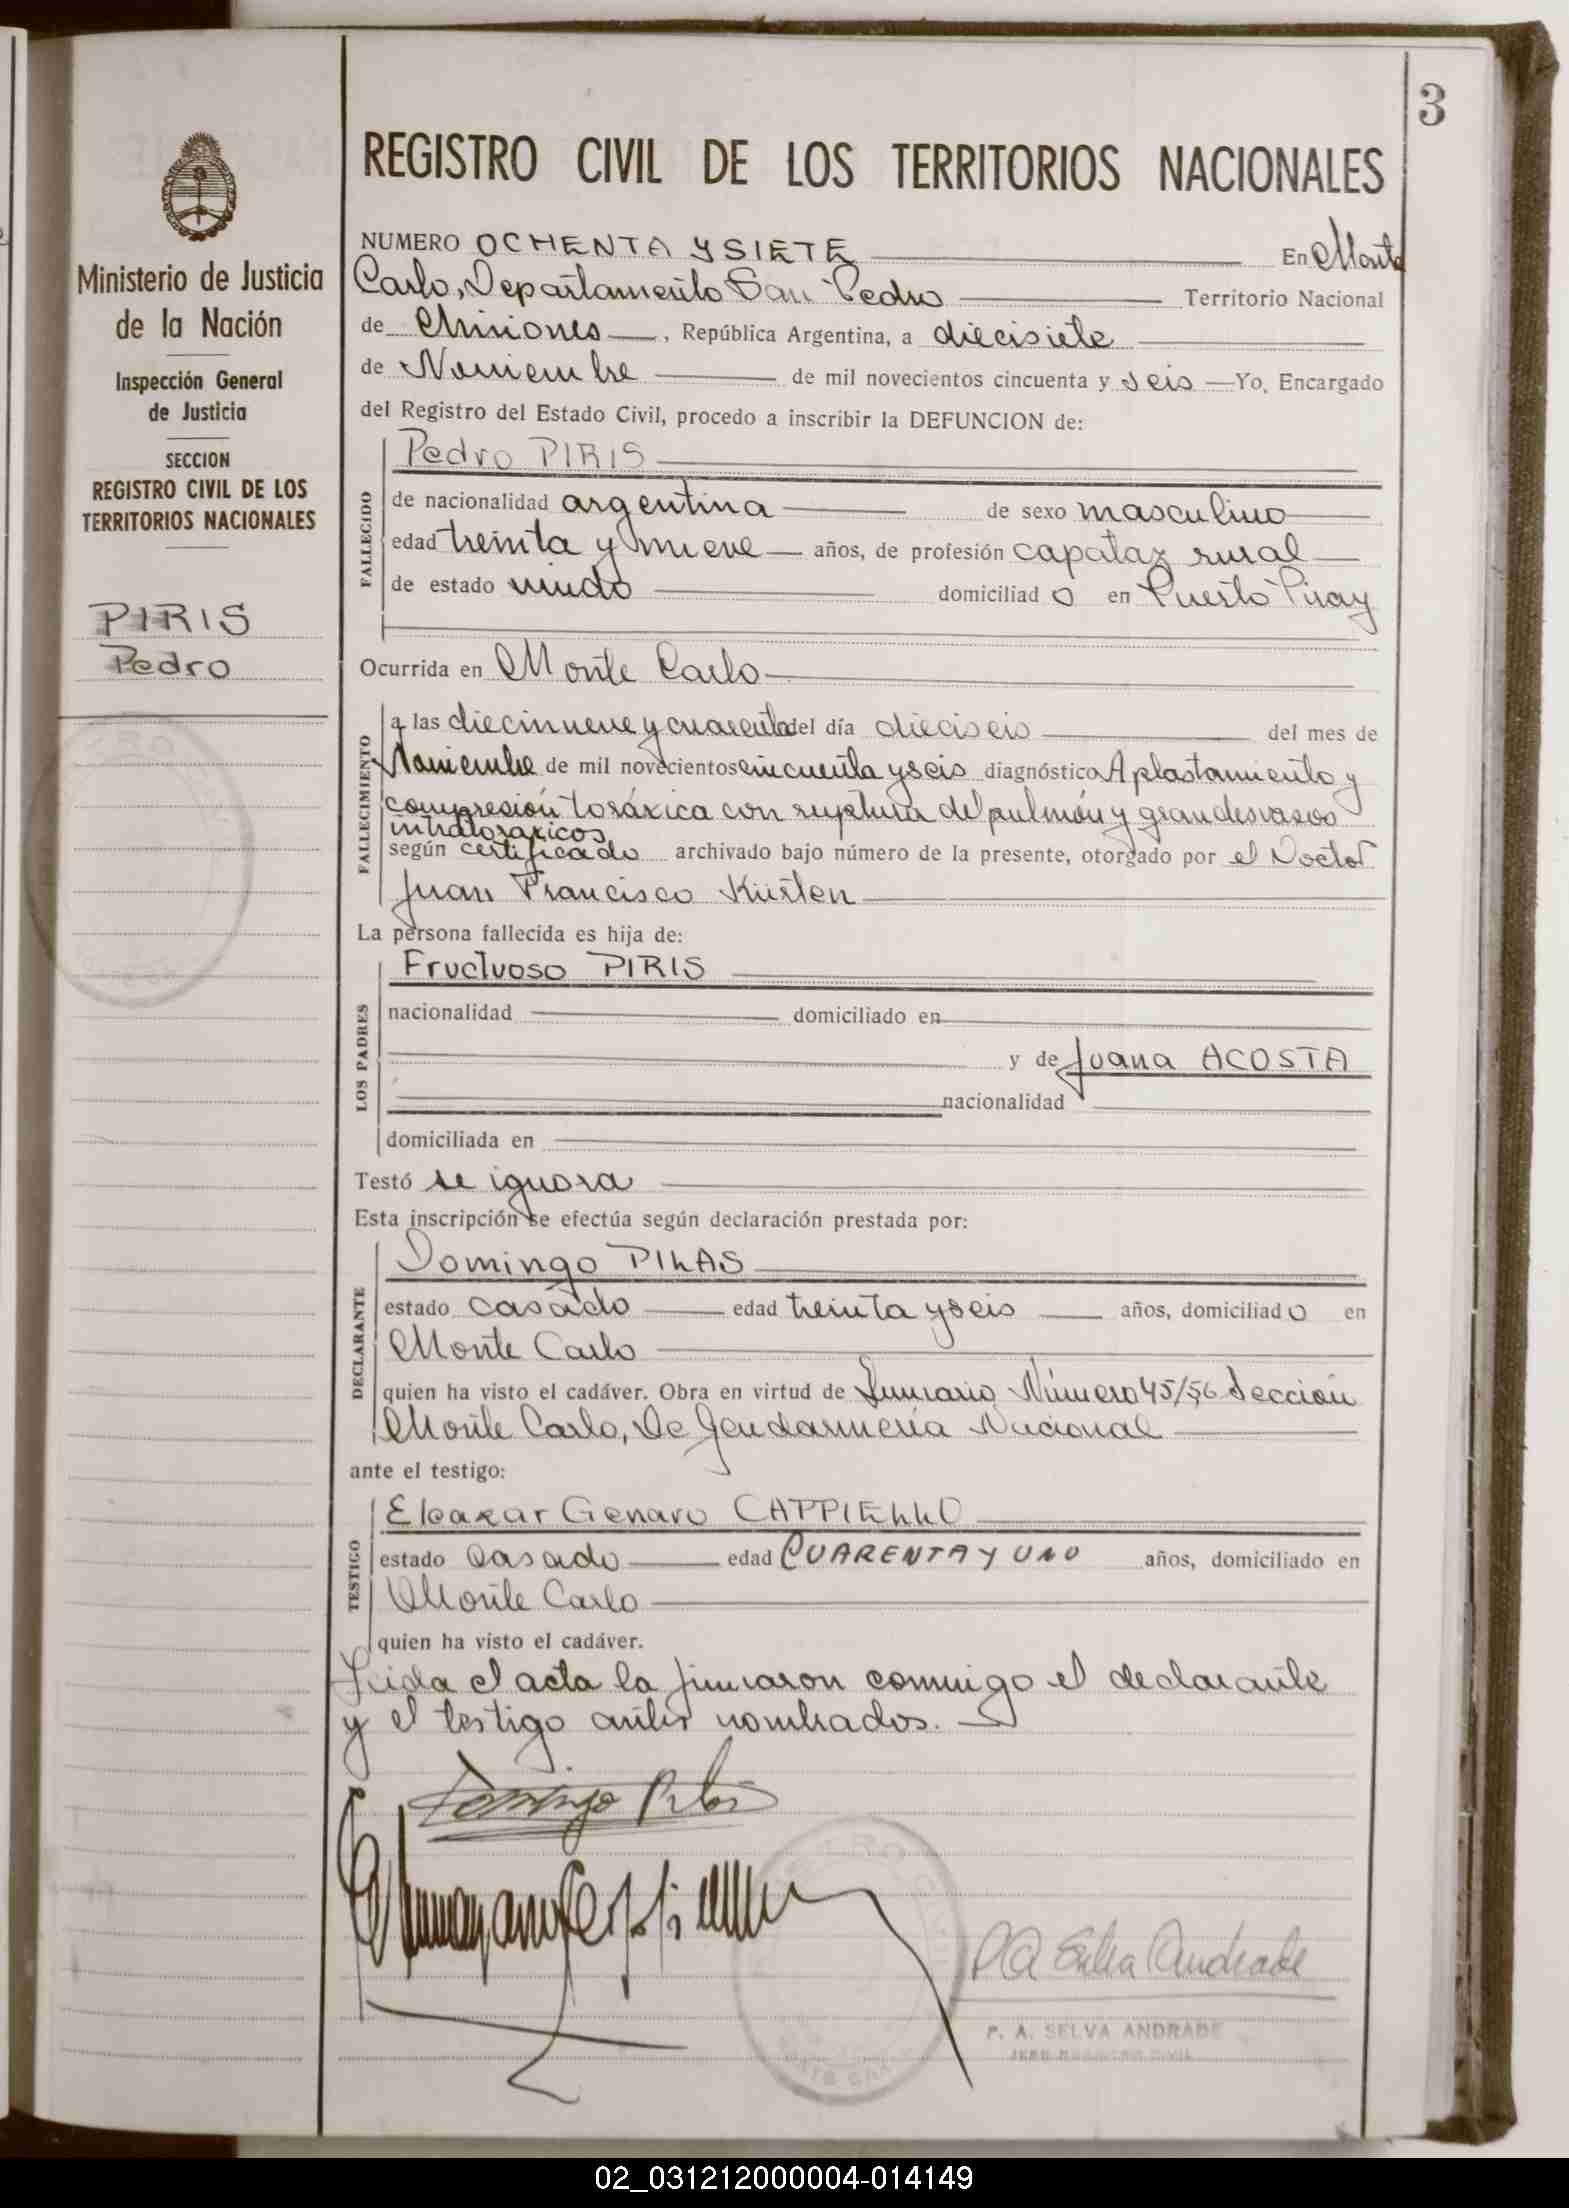 3
REGISTRO CIVIL DE LOS TERRITORIOS NACIONALES
Ministerio de Justicia
de la Nación
Inspección General
de Justicia
SECCION
REGISTRO CIVIL DE LOS
TERRITORIOS NACIONALES
PIRIS
Pedro
NUMERO OCHENTA Y SIETE En Monte
Carlo, Departamento San Pedro Territorio Nacional
de Misiones, República Argentina, a diecisiete
de Noviembre de mil novecientos cincuenta y seis Yo, Encargado
del Registro del Estado Civil, procedo a inscribir la DEFUNCION de:
FALLECIDO
Pedro PIRIS
de nacionalidad argentina de sexo masculino
edad treinta y nueve años, de profesión capataz rural
de estado viudo domiciliad o en Puerto Piray
Ocurrida en Monte Carlo
FALLECIMIENTO
a las diecinueve y cuarenta del día dieciseis del mes de
Noviembre de mil novecientos cincuenta y seis diagnóstico Aplastamiento y
compresión toráxica con ruptura del pulmón y grandes vasos
intratoraxicos
según certificado archivado bajo número de la presente, otorgado por el Doctor
Juan Francisco Küsten
La persona fallecida es hija de:
LOS PADRES
Fructuoso PIRIS
nacionalidad domiciliado en
y de Juana ACOSTA
nacionalidad
domiciliada en
Testó se ignora
Esta inscripción se efectúa según declaración prestada por:
DECLARANTE
Domingo PILAS
estado casado edad treinta y seis años, domiciliado en
Monte Carlo
quien ha visto el cadáver. Obra en virtud de Sumario Número 45/56 Sección
Monte Carlo, De Gendarmería Nacional
ante el testigo:
TESTIGO
Eleazar Genaro CAPPIELLO
estado Casado edad CUARENTA Y UNO años, domiciliado en
Monte Carlo
quien ha visto el cadáver.
Leida el acta la firmaron conmigo el declarante
y el testigo antes nombrados.
Domingo Pilas
P A Selva Andrade
P. A. SELVA ANDRADE
JEFE REGISTRO CIVIL
02_031212000004-014149